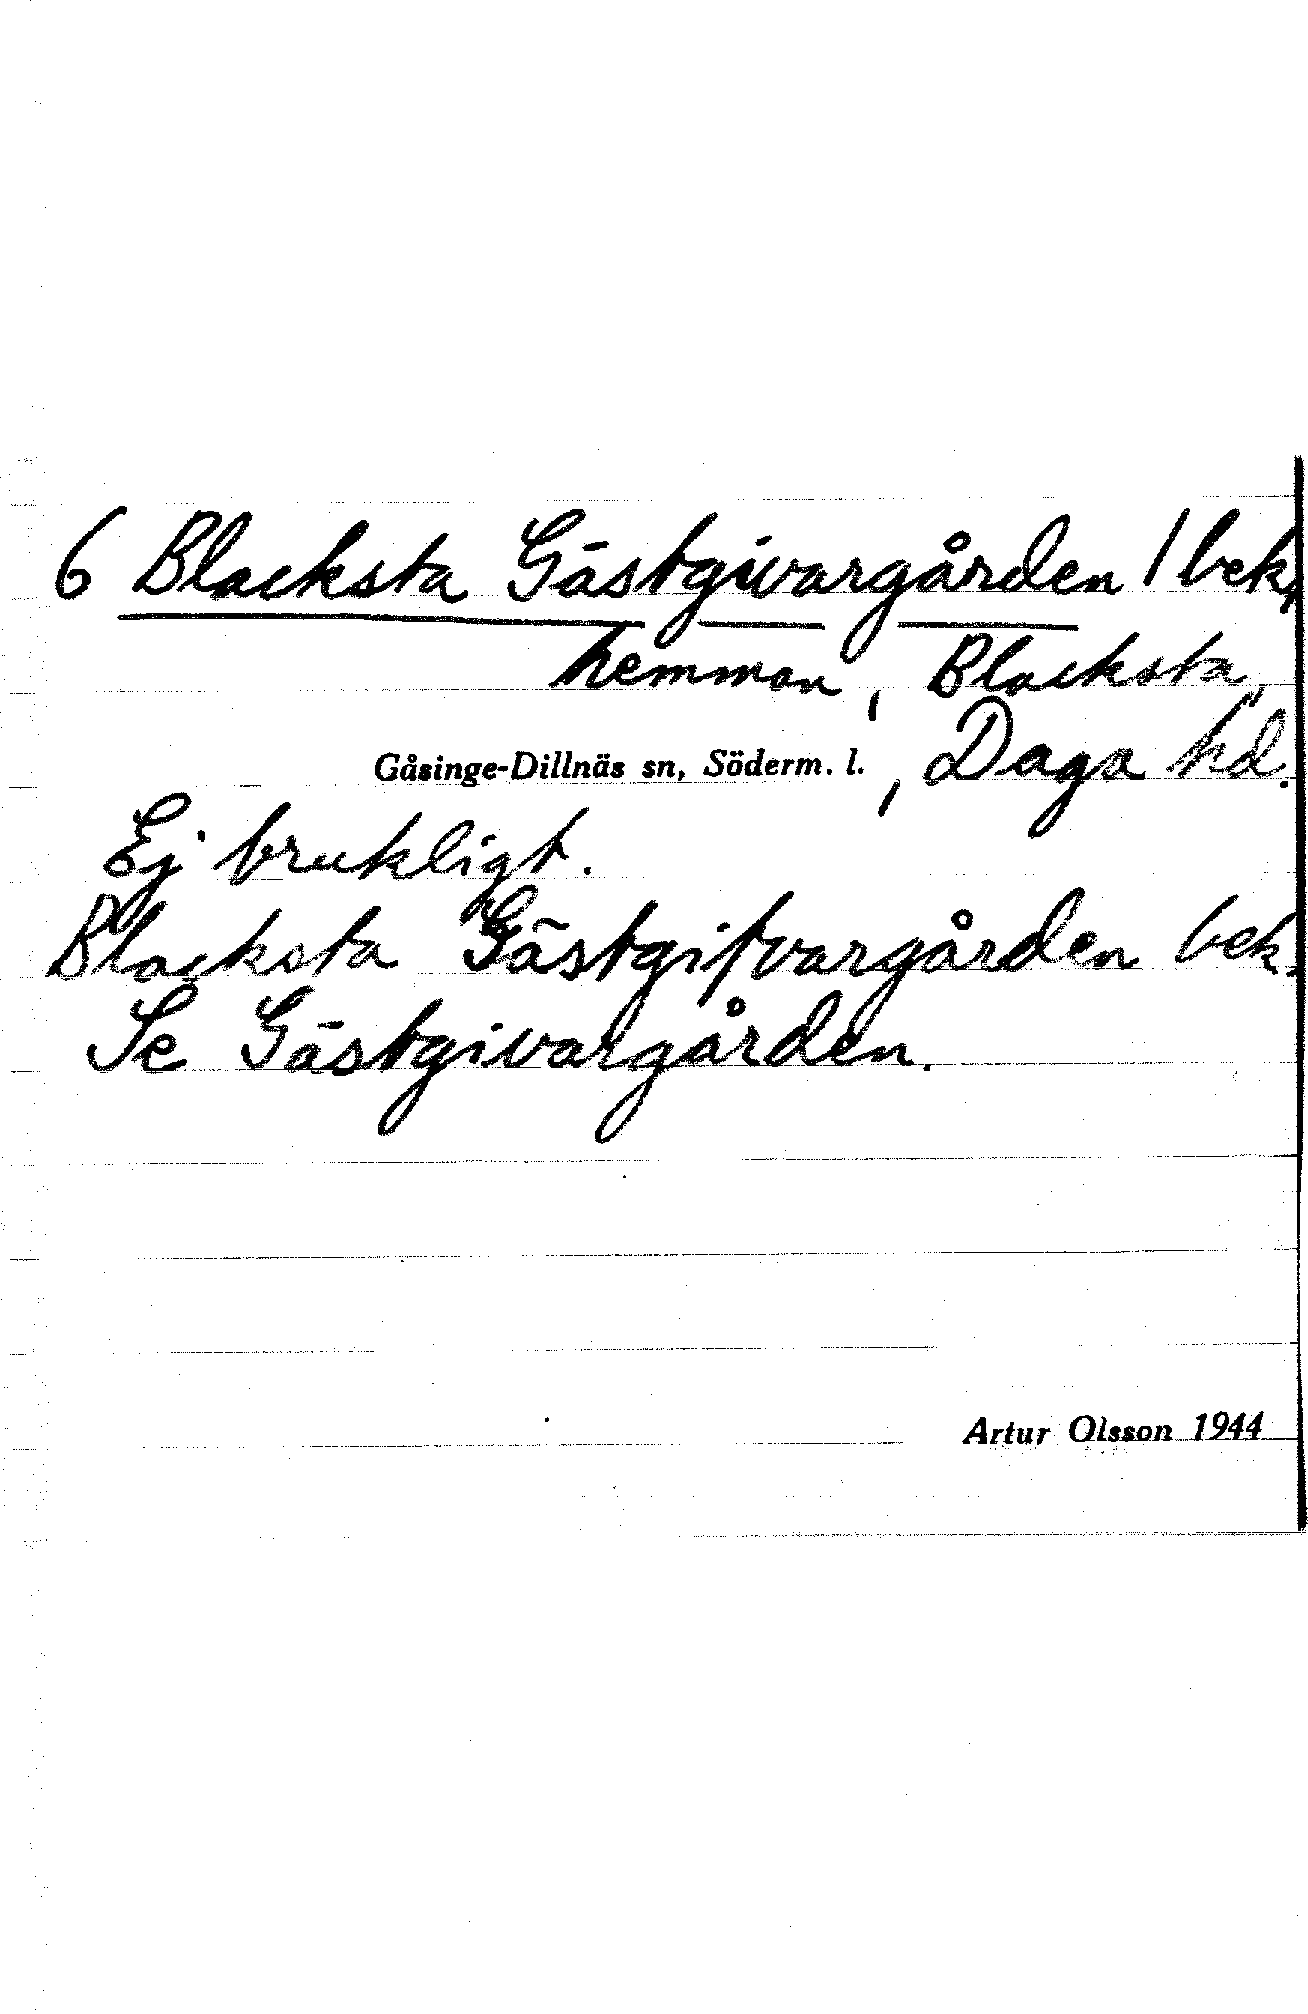 6 Blacksta Gästgivargården / bek,
hemman, Blacksta,
Gåsinge-Dillnäs sn, Söderm. l., Daga hd.
Ej brukligt.
Blacksta Gästgifvargården bek.
Se Gästgivargården.
Artur Olsson 1944